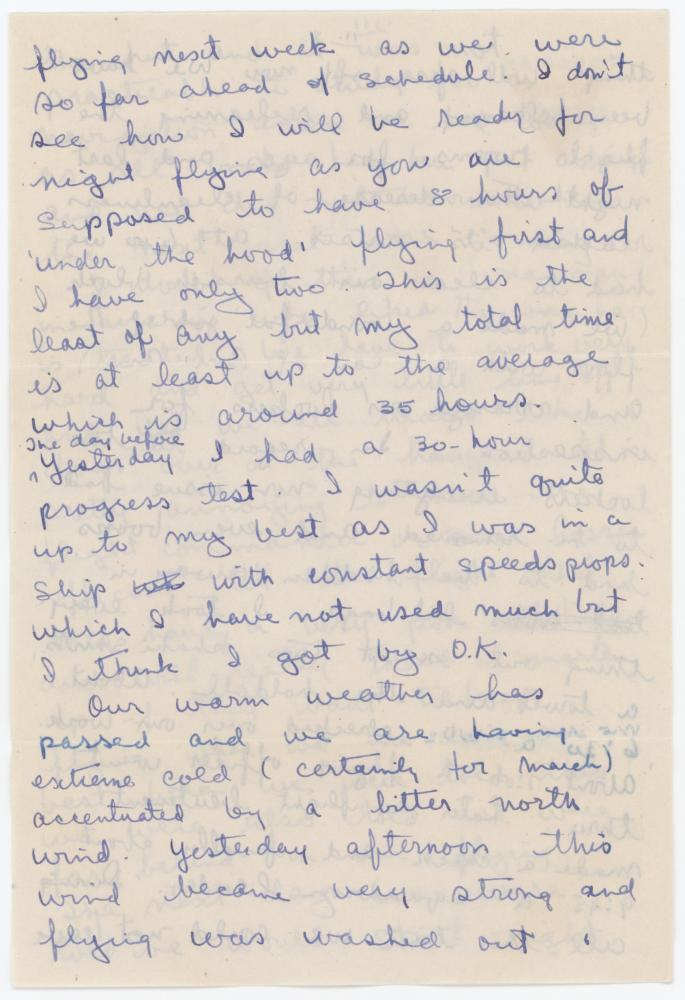 flying next week as we were
so far ahead of schedule. I don't
see how I will be ready for
night flying as you are
supposed to have 8 hours of
'under the hood' flying first and
I have only two. This is the
least of any but my total time
is at least up to the average
which is around 35 hours.
The day before
^Yesterday I had a 30-hour
progress test. I wasn't quite
up to my best as I was in a
ship with constant speeds props.
which I have not used much but
I think I got by O.K.
Our warm weather has
passed and we are having
extreme cold (certainly for March)
accentuated by a bitter north
wind. Yesterday afternoon this
wind became very strong and
flying was washed out.